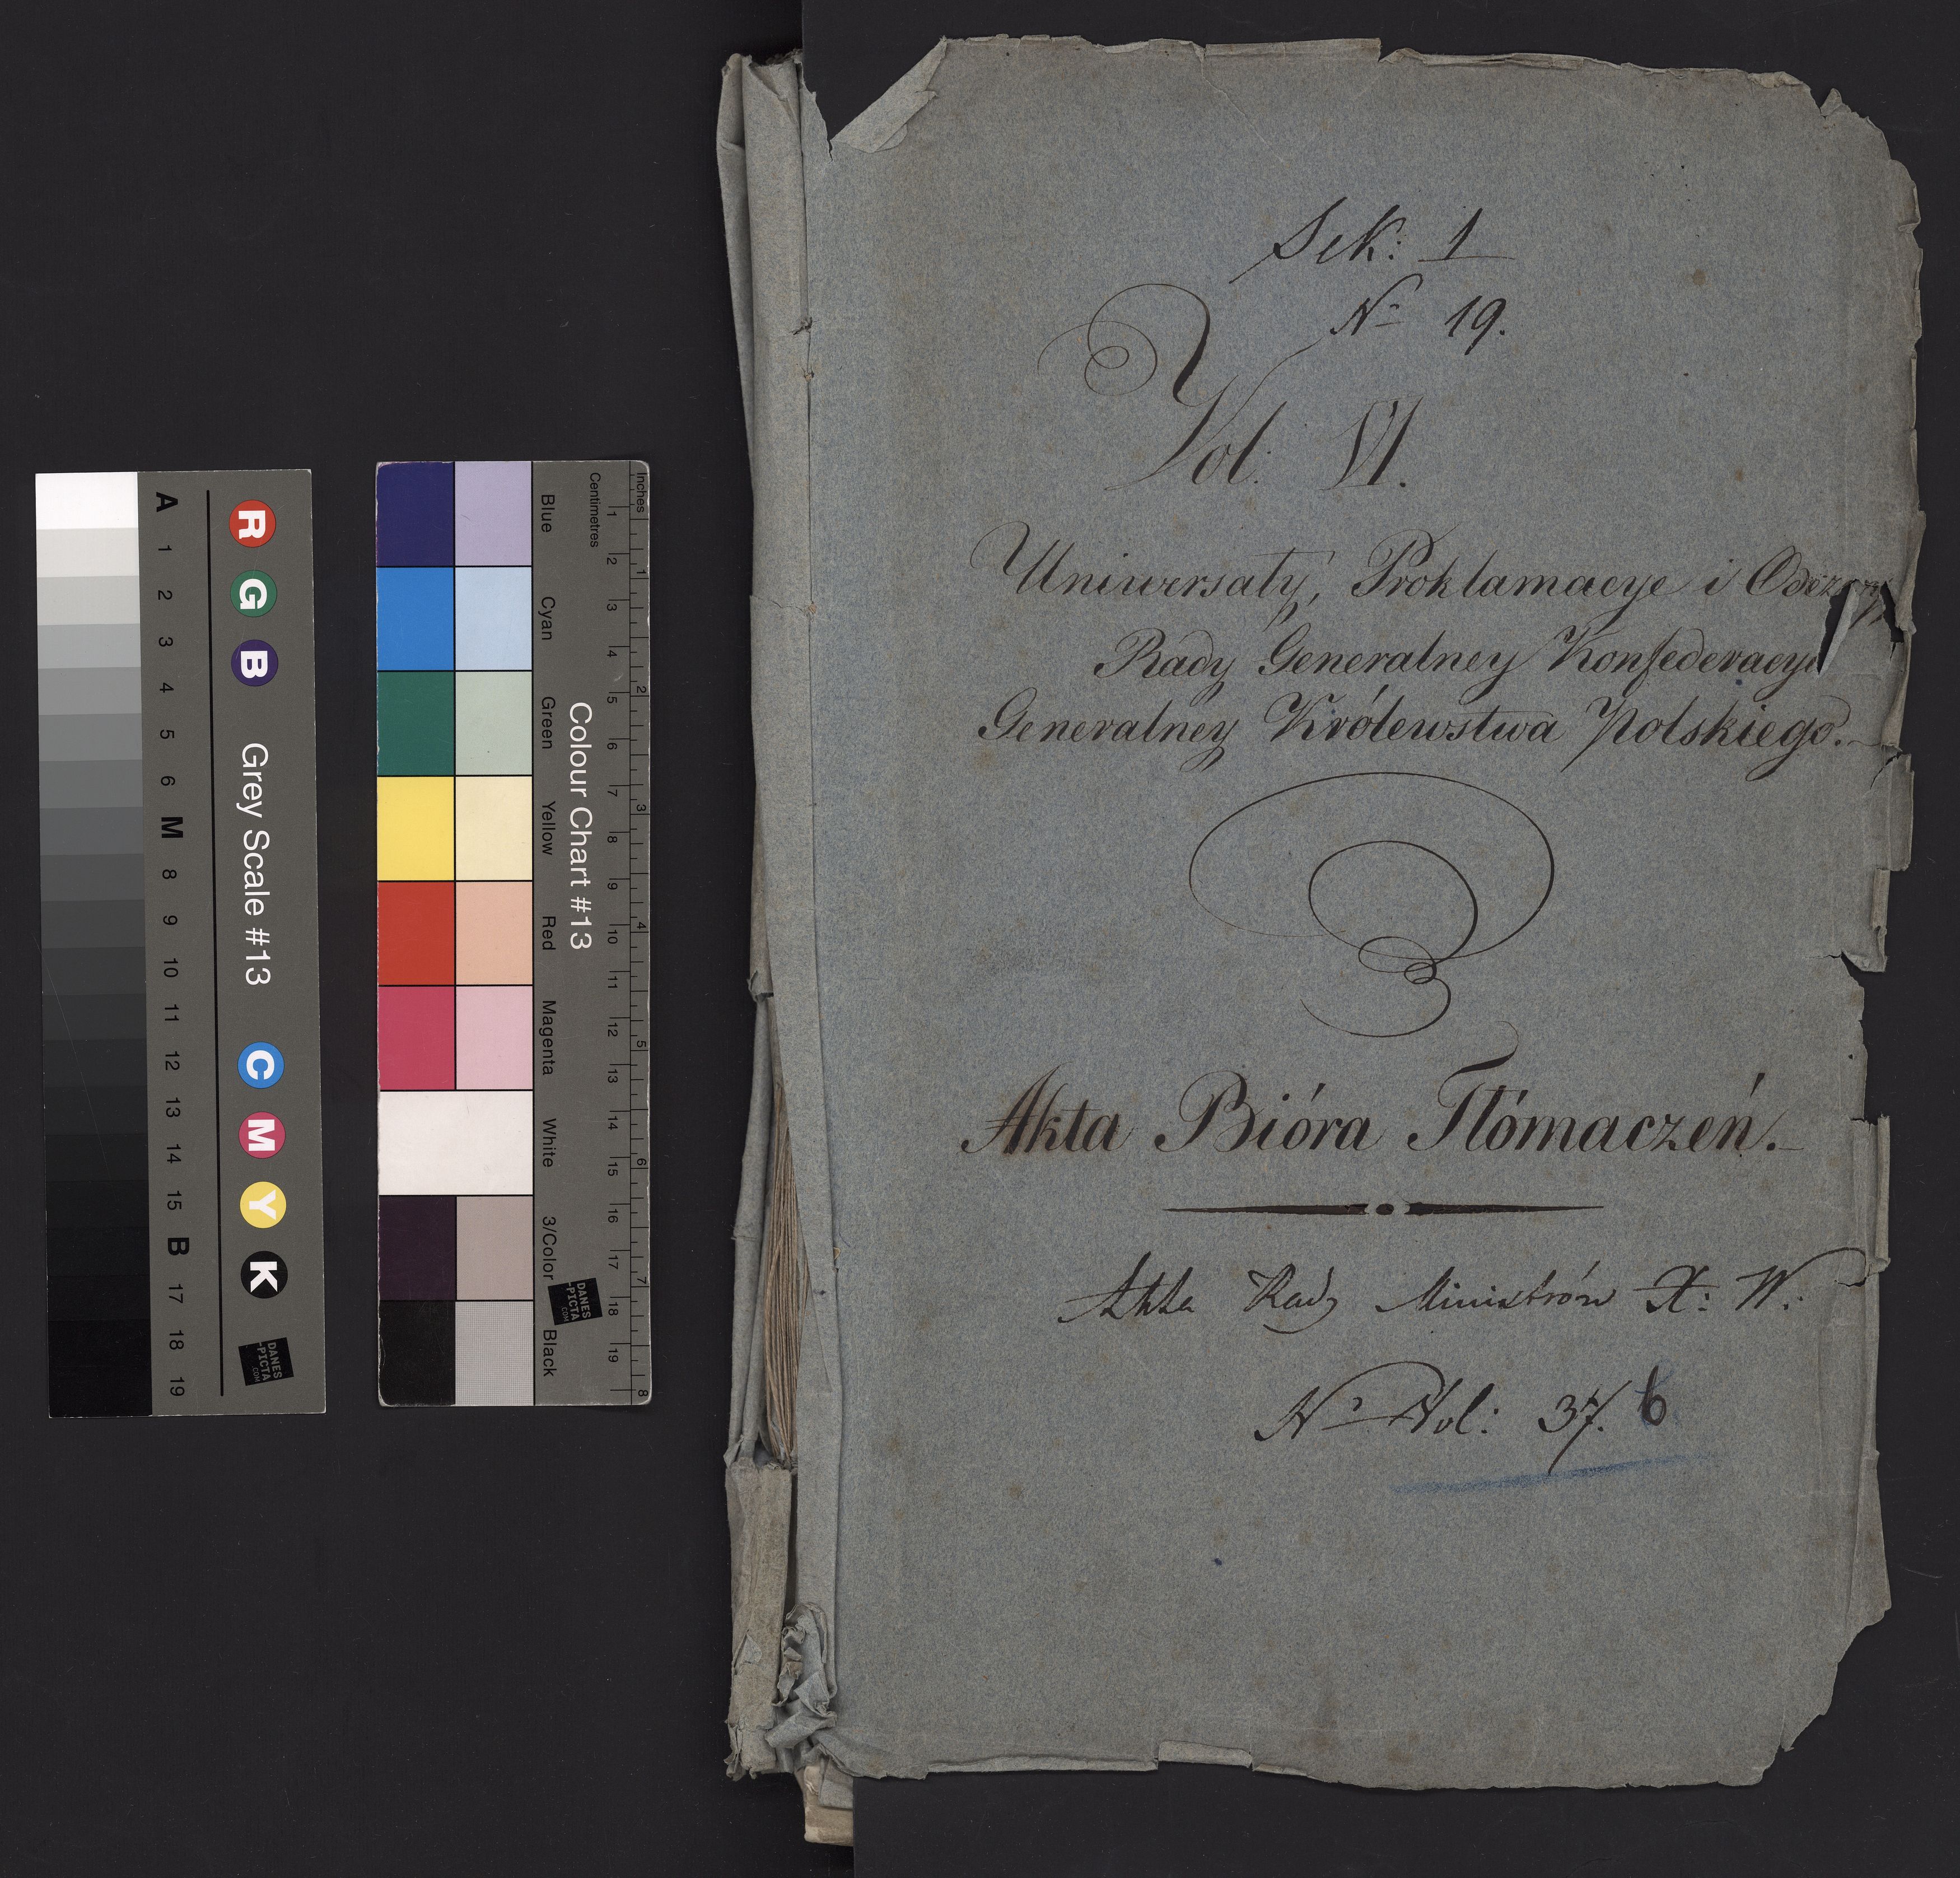 Sek: 1
No 19.
Vol: VI.
Uniwersały, Proklamacye i Odezwy
Rady Generalney Konfederacyi
Generalney Królewstwa Polskiego.
Akta Bióra Tłómaczeń.
Akta Rady Ministrów X: W:
No Vol: 37. b
Grey Scale #13
R G B
C M Y K
A 1 2 3 4 5 6 M 8 9 10 11 12 13 14 15 B 17 18 19
DANES
-PICTA
.COM
Colour Chart #13
Blue Cyan Green Yellow Red Magenta White 3/Color Black
Centimetres
1 2 3 4 5 6 7 8 9 10 11 12 13 14 15 16 17 18 19
Inches
1 2 3 4 5 6 7 8
DANES
-PICTA
.COM